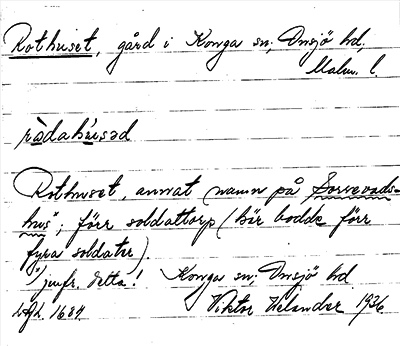 Rothuset, gård i Konga sn; Onsjö hd,
Malm. l.
ròdahùsəd
Rothuset, annat namn på Sorrevads-
hus"; förr soldattorp (här bodde förr
fyra soldater).
"jmfr. detta! Konga sn; Onsjö hd
LAL 1684 Viktor Velander 1936